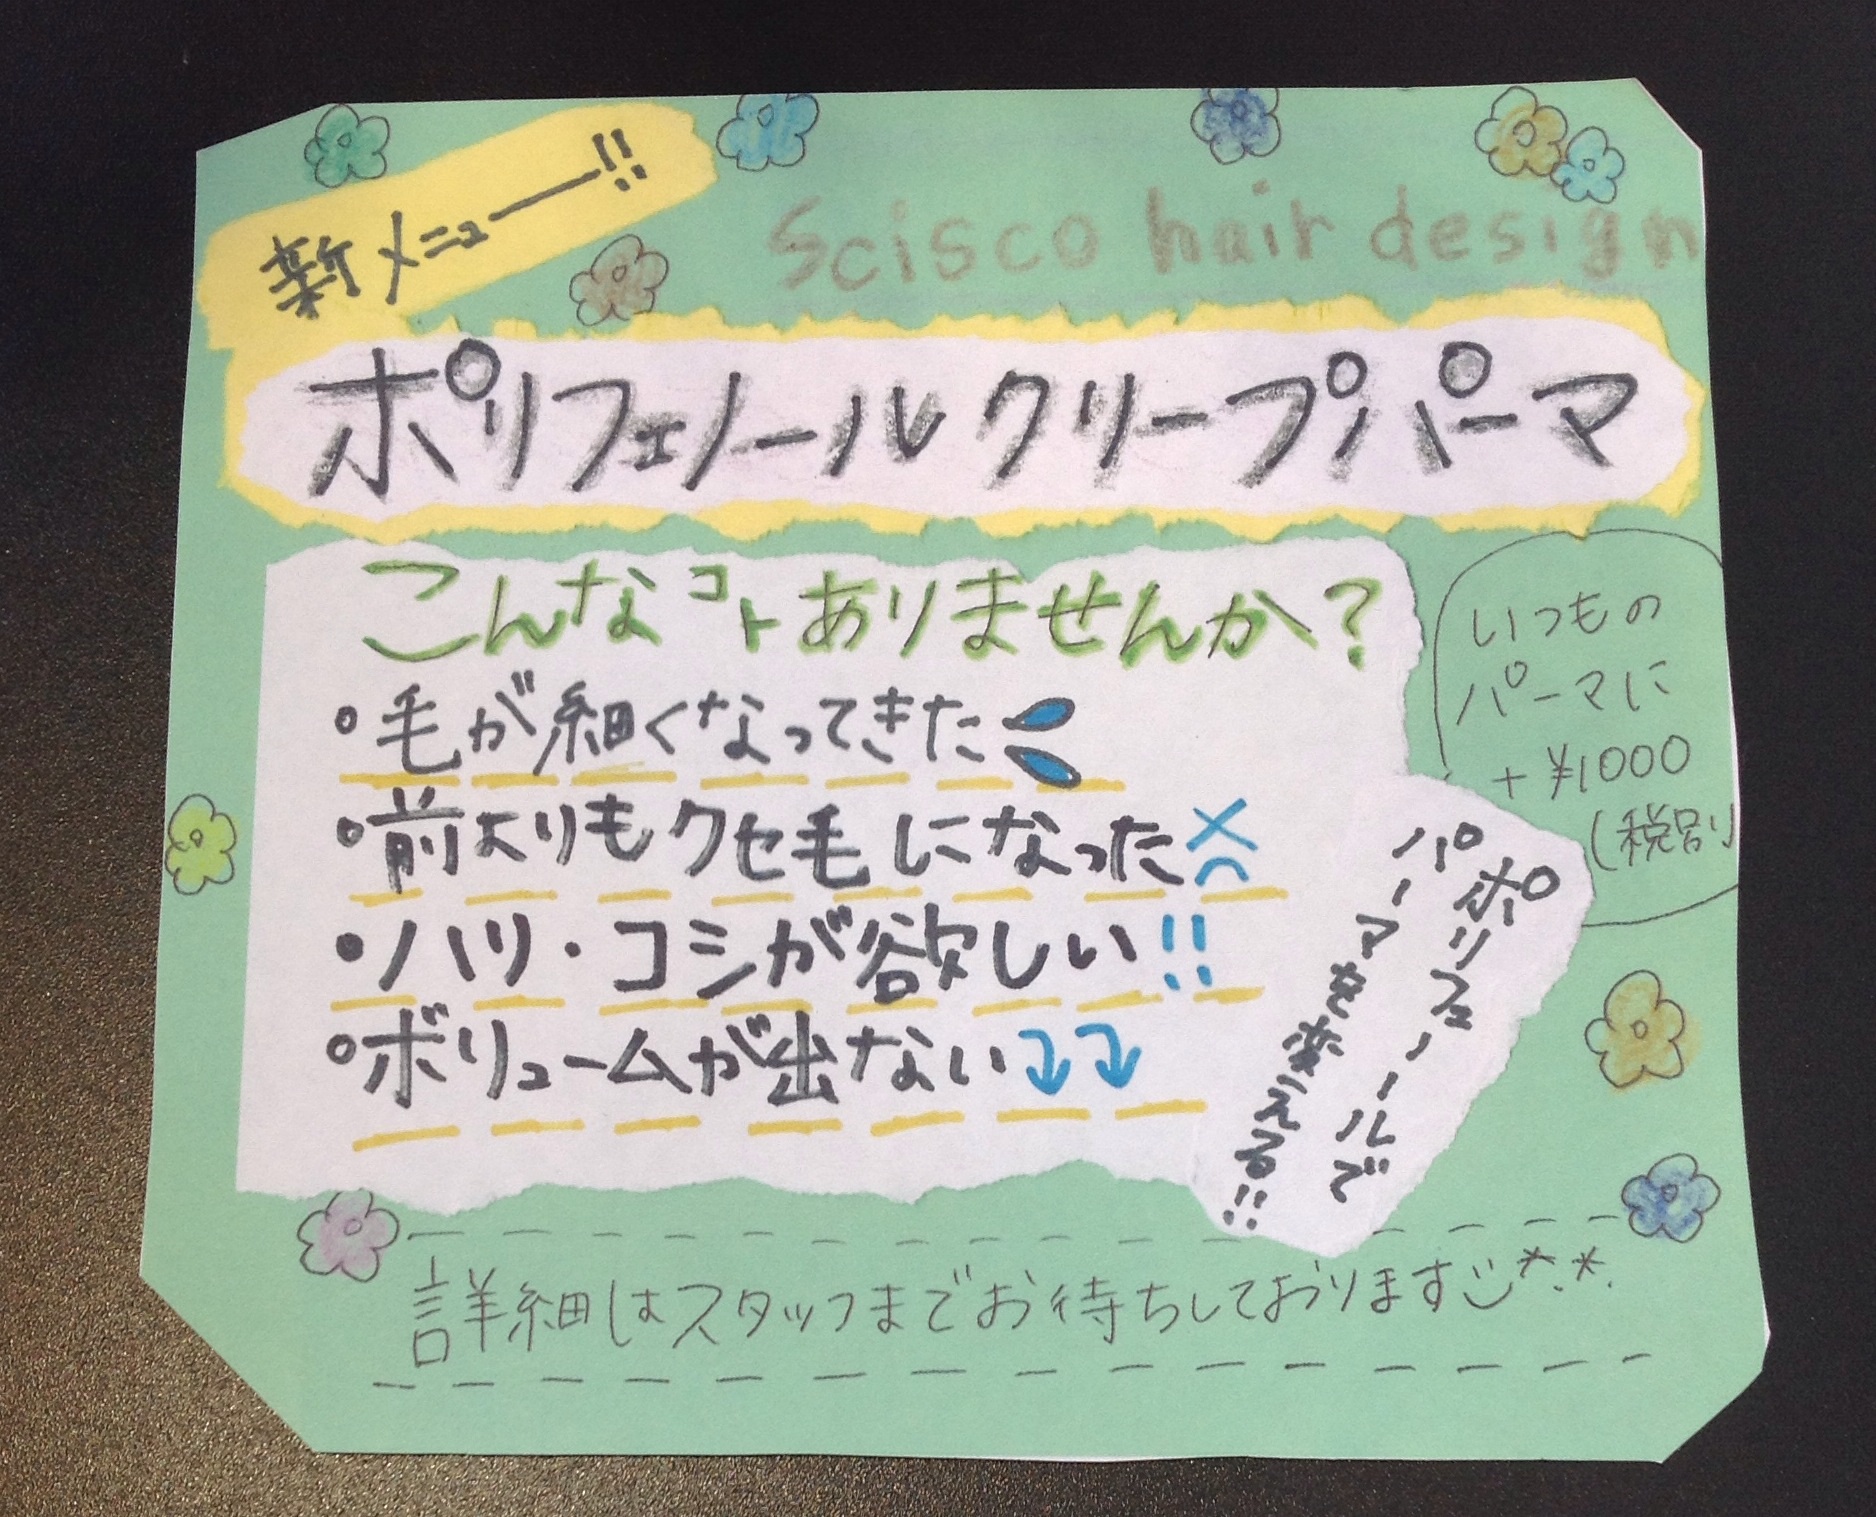 新メニュー!!
Scisco hair design
ポリフェノールクリープパーマ
こんなコトありませんか?
・毛が細くなってきた
・前よりもクセ毛になった
・ハリ・コシが欲しい!!
・ボリュームが出ない
いつもの
パーマに
+¥1000
(税別
ポリフェノールで
パーマを変える!!
詳細はスタッフまでお待ちしております